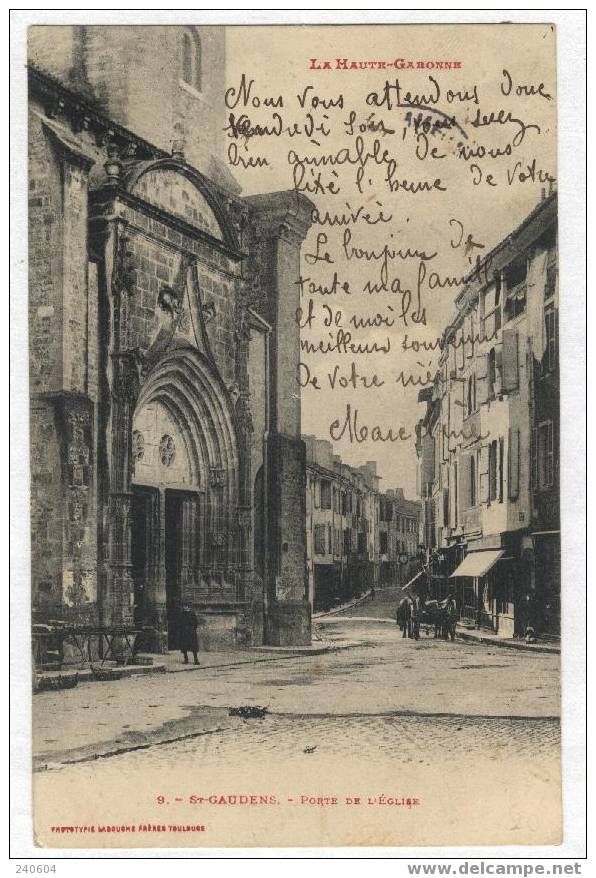 LA HAUTE-GARONNE
Nous vous attendons donc
Vendredi soir, vous serez
bien aimable de nous
l'heure de votre
arrivée.
Le bonjour de
toute ma famille
et de moi les
meilleurs souvenirs
De votre nièce
Marceline
9. - ST-GAUDENS. - PORTE DE L'ÉGLISE
PHOTOTYPIE LABOUCHE FRÈRES TOULOUSE
240604
www.delcampe.net